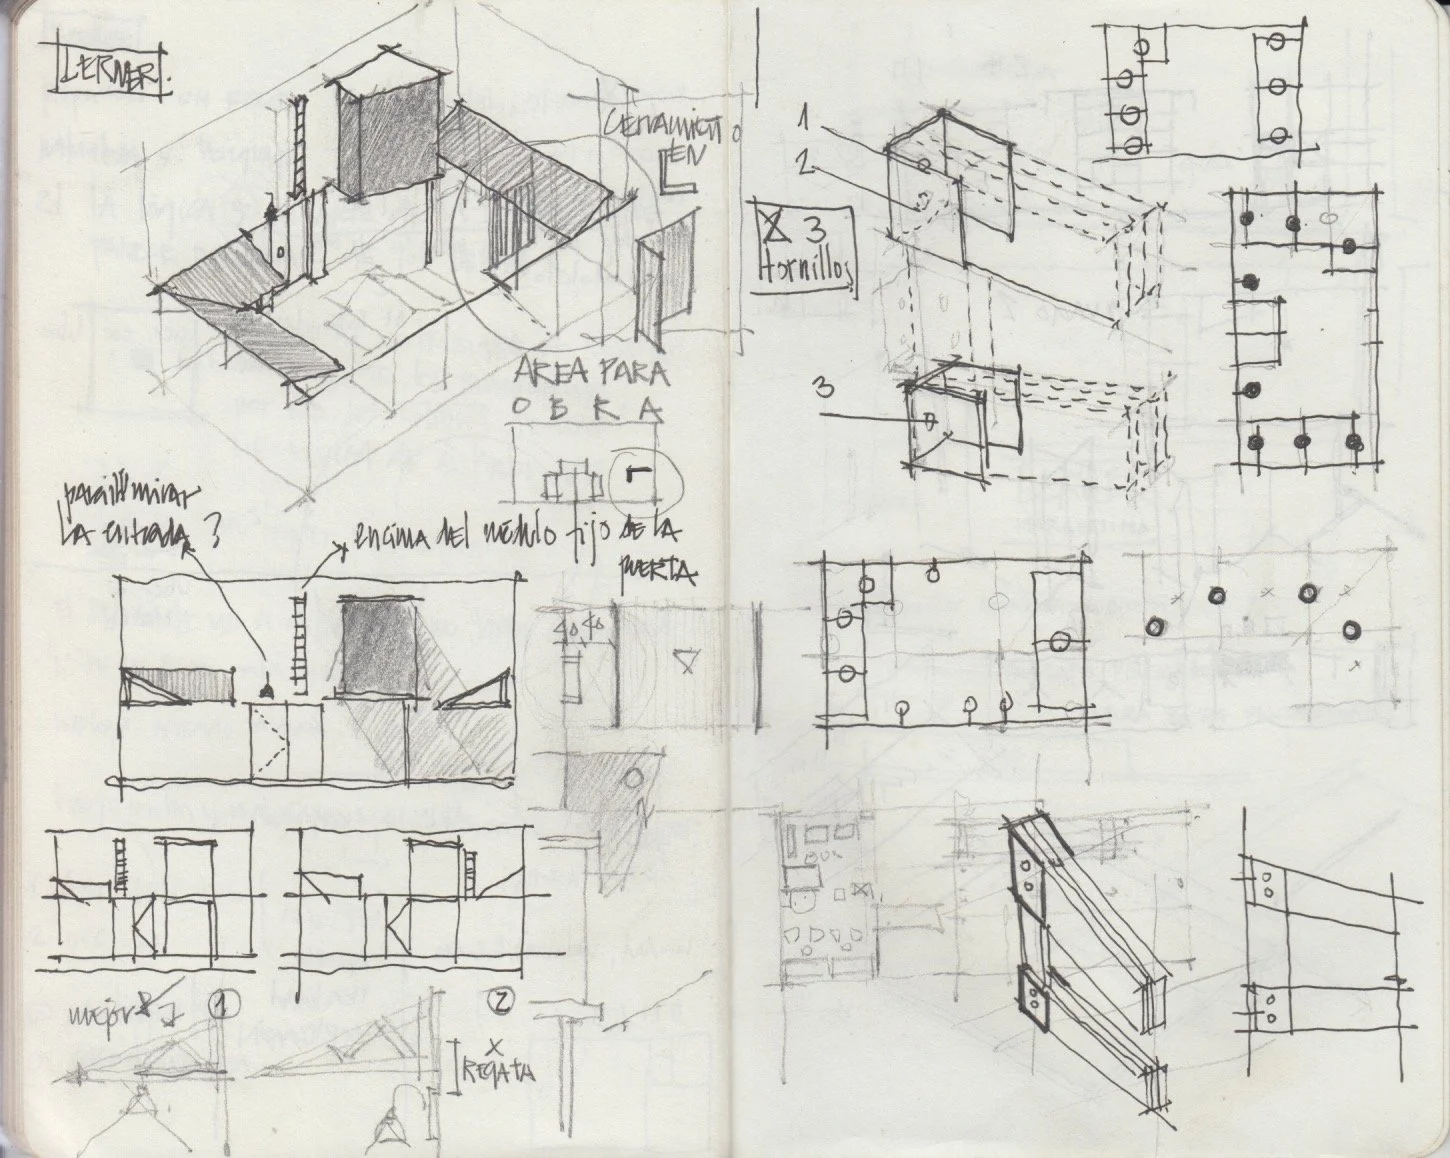 LERNER.
CERRAMIENTO
EN
L
AREA PARA
OBRA
para iluminar
la entrada?
encima del módulo fijo de la
puerta
mejor
1
2
X
REGATA
1
2
X 3
tornillos
3